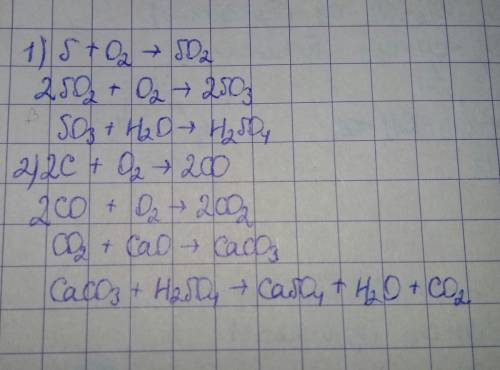 1) S + O₂ → SO₂
2SO₂ + O₂ → 2SO₃
SO₃ + H₂O → H₂SO₄
2) 2C + O₂ → 2CO
2CO + O₂ → 2CO₂
CO₂ + CaO → CaCO₃
CaCO₃ + H₂SO₄ → CaSO₄ + H₂O + CO₂